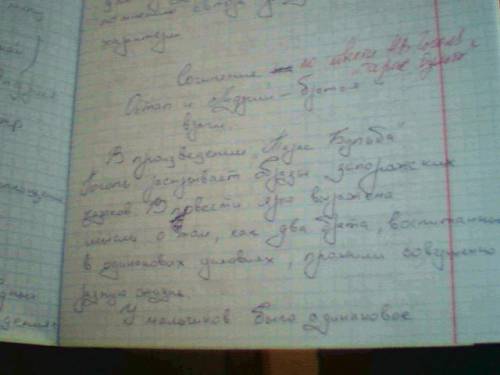 характеры
Сочинение по повести Н.В. Гоголя
"Тарас Бульба"
Остап и Андрий – братья и
враги.
В произведении "Тарас Бульба"
Гоголь раскрывает образы запорожских
казаков. В повести ярко выражена
мысль о том, как два брата, воспитанные
в одинаковых условиях, прожили совершенно
У мальчиков было одинаковое